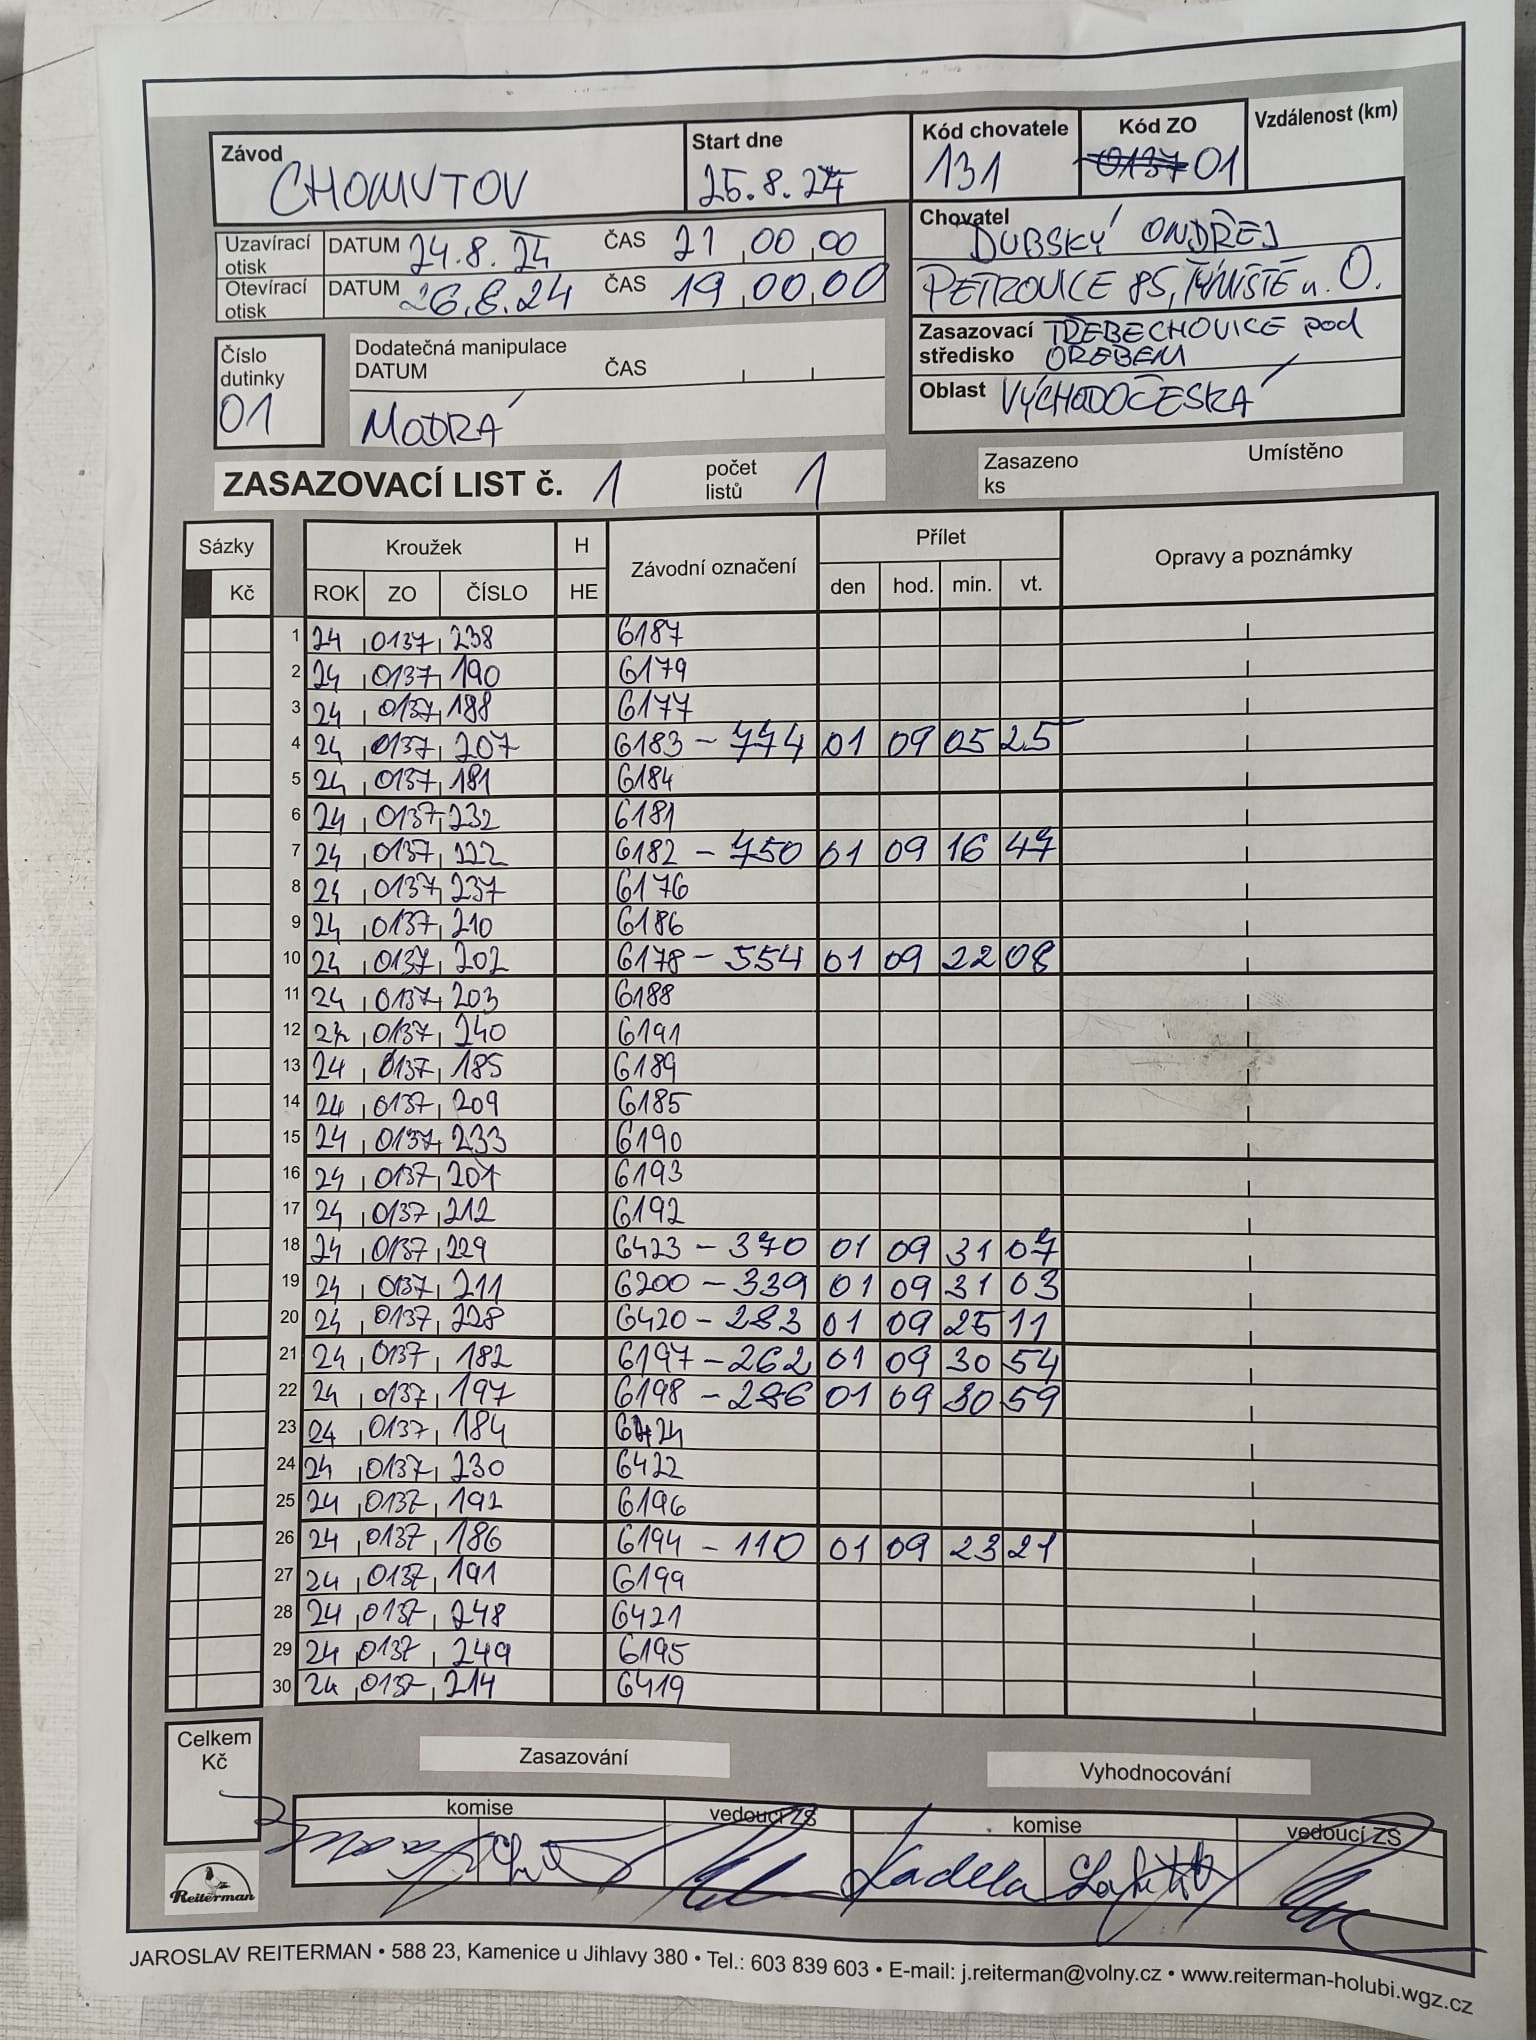 Závod CHOMUTOV Start dne 25.8.24 Kód chovatele 131 Kód ZO 0137 01 Vzdálenost (km)
Uzavírací otisk DATUM 24.8.24 ČAS 21,00,00
Otevírací otisk DATUM 26.8.24 ČAS 19,00,00
Chovatel DUBSKÝ ONDŘEJ
PETROVICE 85, TÝNIŠTĚ n. O.
Zasazovací středisko TŘEBECHOVICE pod OREBEM
Oblast VÝCHODOČESKÁ
Číslo dutinky 01
Dodatečná manipulace
DATUM ČAS
MODRÁ
ZASAZOVACÍ LIST č. 1 počet listů 1
Zasazeno ks Umístěno
Sázky Kroužek H Závodní označení Přílet Opravy a poznámky
Kč ROK ZO ČÍSLO HE den hod. min. vt.
1 24 0137 238 6187
2 24 0137 190 6179
3 24 0137 188 6177
4 24 0137 207 6183 - 774 01 09 05 25
5 24 0137 181 6184
6 24 0137 232 6181
7 24 0137 222 6182 - 750 01 09 16 47
8 24 0137 237 6176
9 24 0137 210 6186
10 24 0137 202 6178 - 554 01 09 22 08
11 24 0137 203 6188
12 24 0137 240 6191
13 24 0137 185 6189
14 24 0137 209 6185
15 24 0137 233 6190
16 24 0137 201 6193
17 24 0137 212 6192
18 24 0137 229 6423 - 370 01 09 31 07
19 24 0137 211 6200 - 339 01 09 31 03
20 24 0137 228 6420 - 283 01 09 25 11
21 24 0137 182 6197 - 262 01 09 30 54
22 24 0137 197 6198 - 286 01 09 30 59
23 24 0137 184 6424
24 24 0137 230 6422
25 24 0137 192 6196
26 24 0137 186 6194 - 110 01 09 23 21
27 24 0137 191 6199
28 24 0137 248 6421
29 24 0137 249 6195
30 24 0137 214 6419
Celkem Kč
Zasazování Vyhodnocování
komise vedoucí ZS komise vedoucí ZS
Kadela
Reiterman
JAROSLAV REITERMAN • 588 23, Kamenice u Jihlavy 380 • Tel.: 603 839 603 • E-mail: j.reiterman@volny.cz • www.reiterman-holubi.wgz.cz